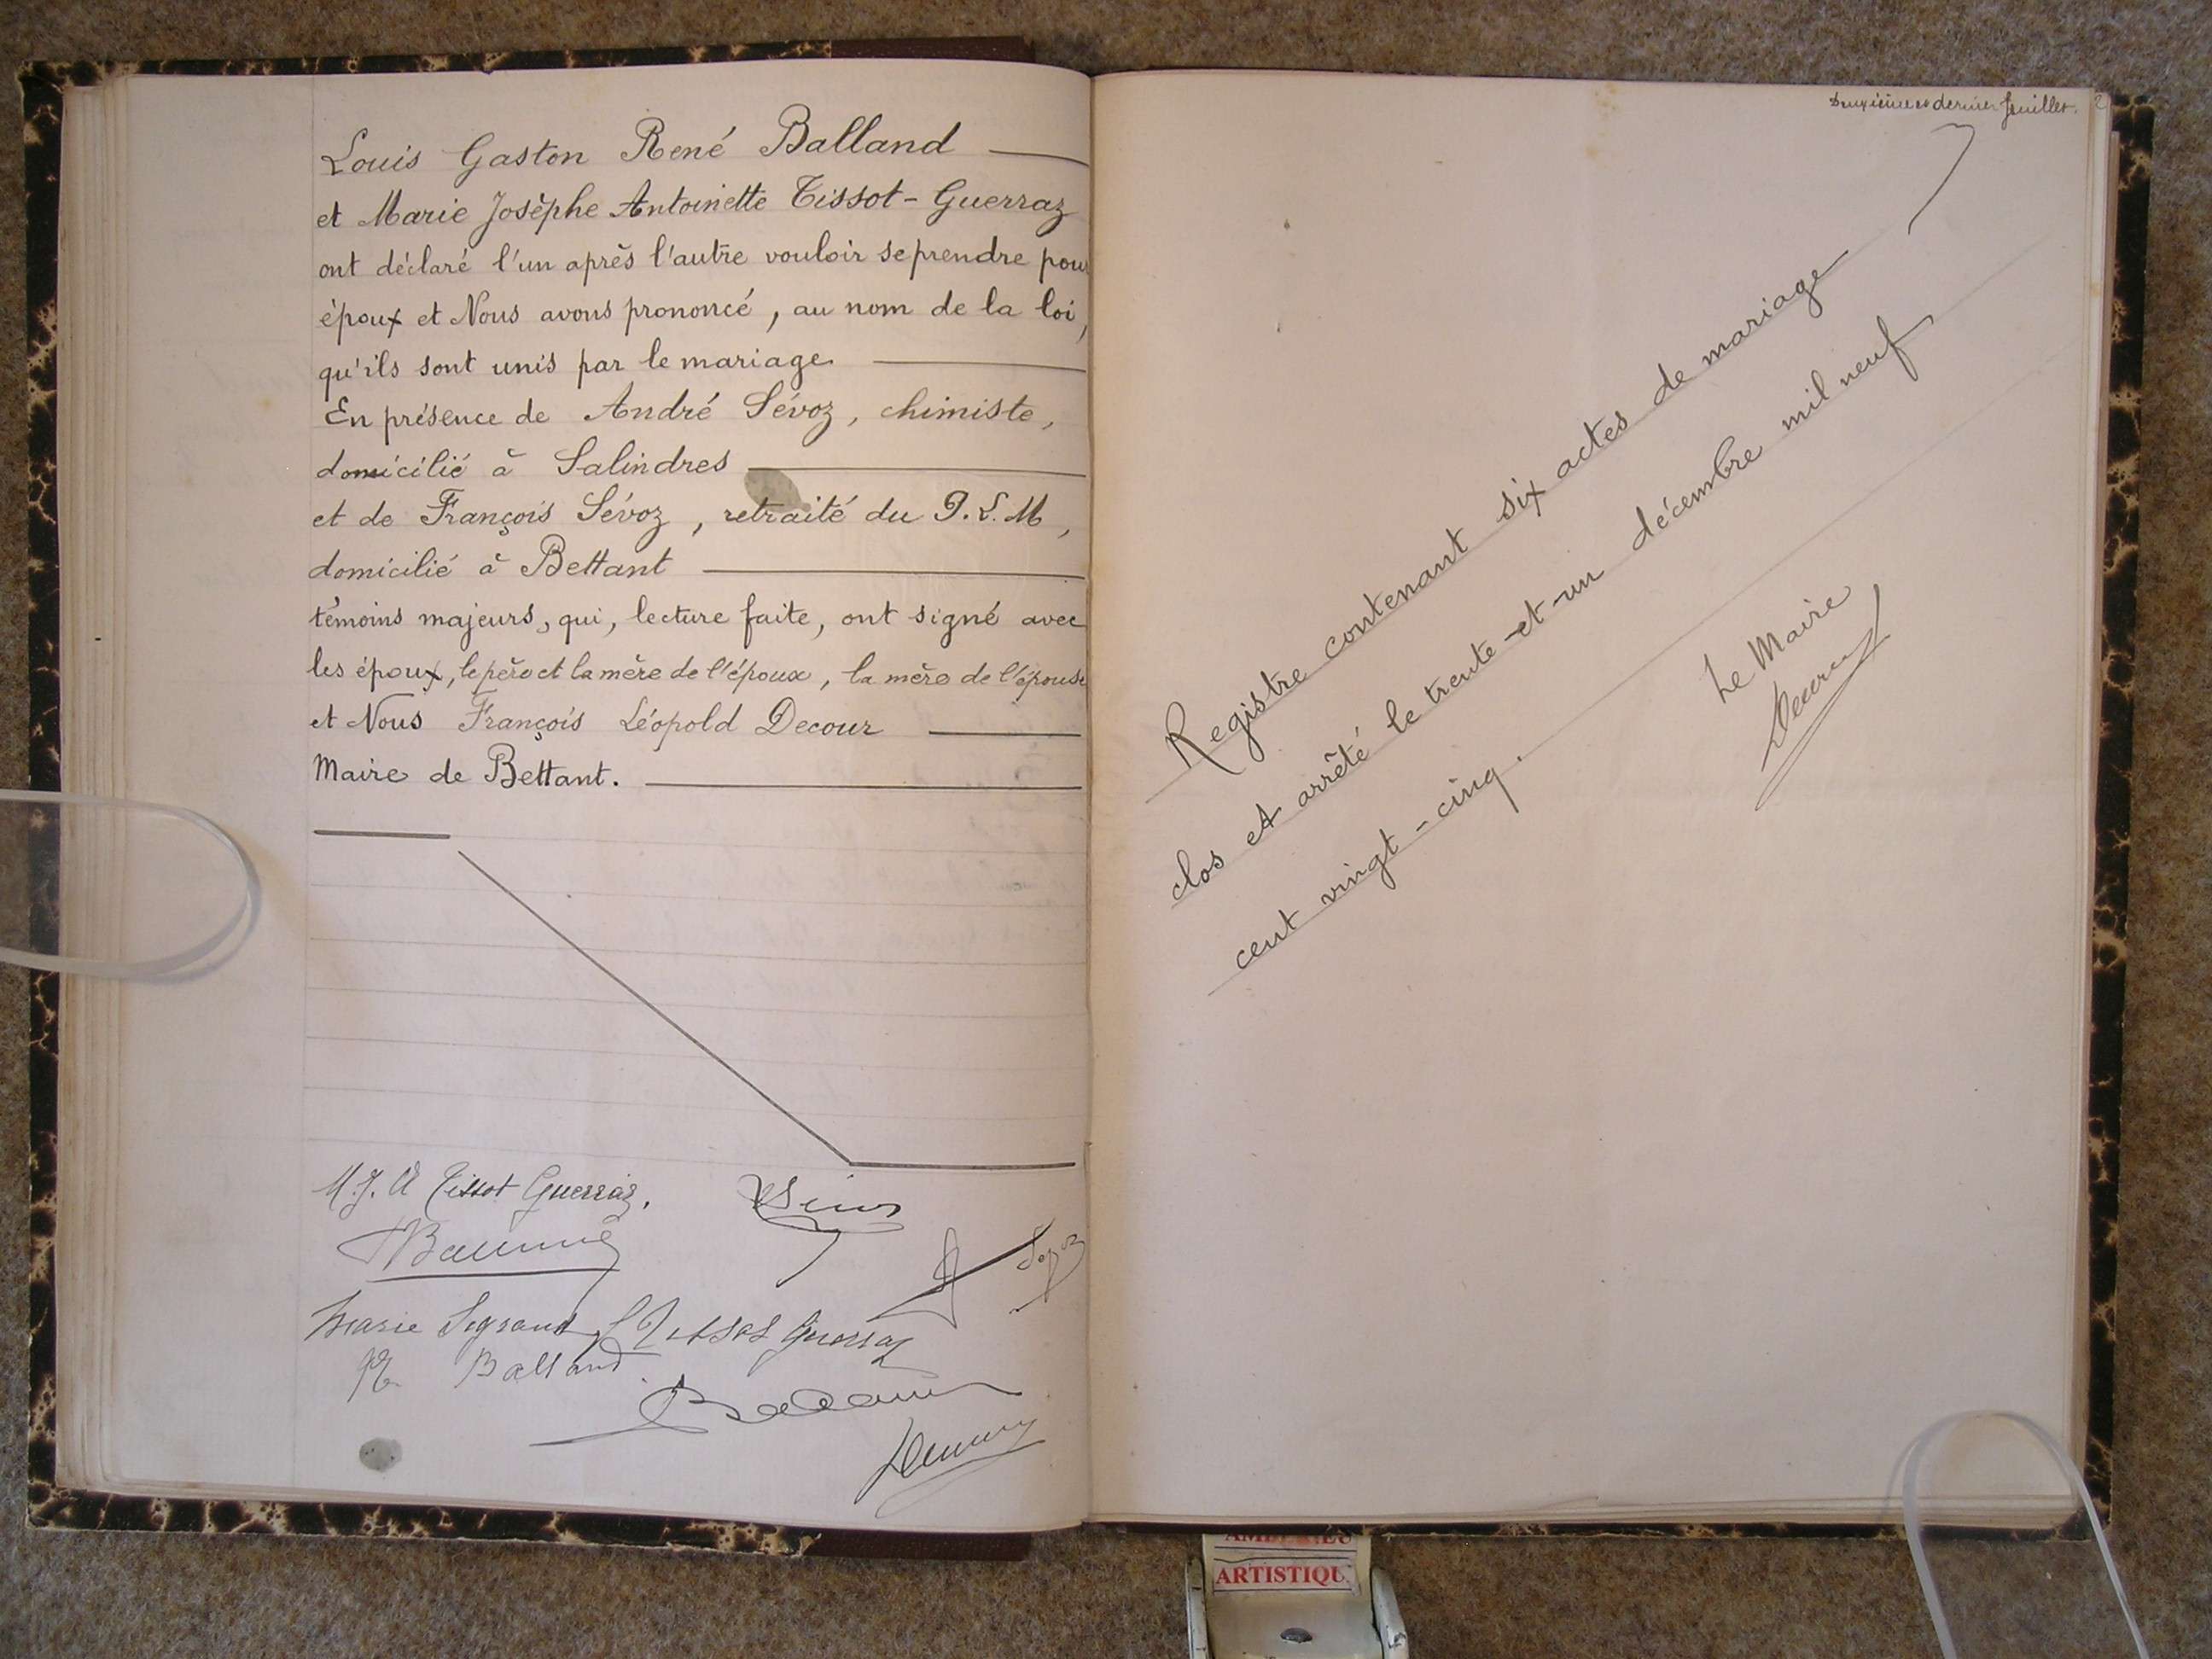 Louis Gaston René Balland
et Marie Josèphe Antoinette Tissot-Guerraz
ont déclaré l'un après l'autre vouloir se prendre pour
époux et Nous avons prononcé, au nom de la loi,
qu'ils sont unis par le mariage
En présence de André Sévoz, chimiste,
domicilié à Salindres
et de François Sévoz, retraité du P.L.M,
domicilié à Bettant
témoins majeurs, qui, lecture faite, ont signé avec
les époux, le père et la mère de l'époux, la mère de l'épouse
et Nous François Léopold Decour
Maire de Bettant.
M. J. A Tissot Guerraz.
Marie Legrand Tissot Guerraz
Balland
Decour
Deuxième et dernier feuillet. 2
Registre contenant six actes de mariage
clos et arrêté le trente-et-un décembre mil neuf
cent vingt-cinq.
Le Maire
Decour
ARTISTIQU